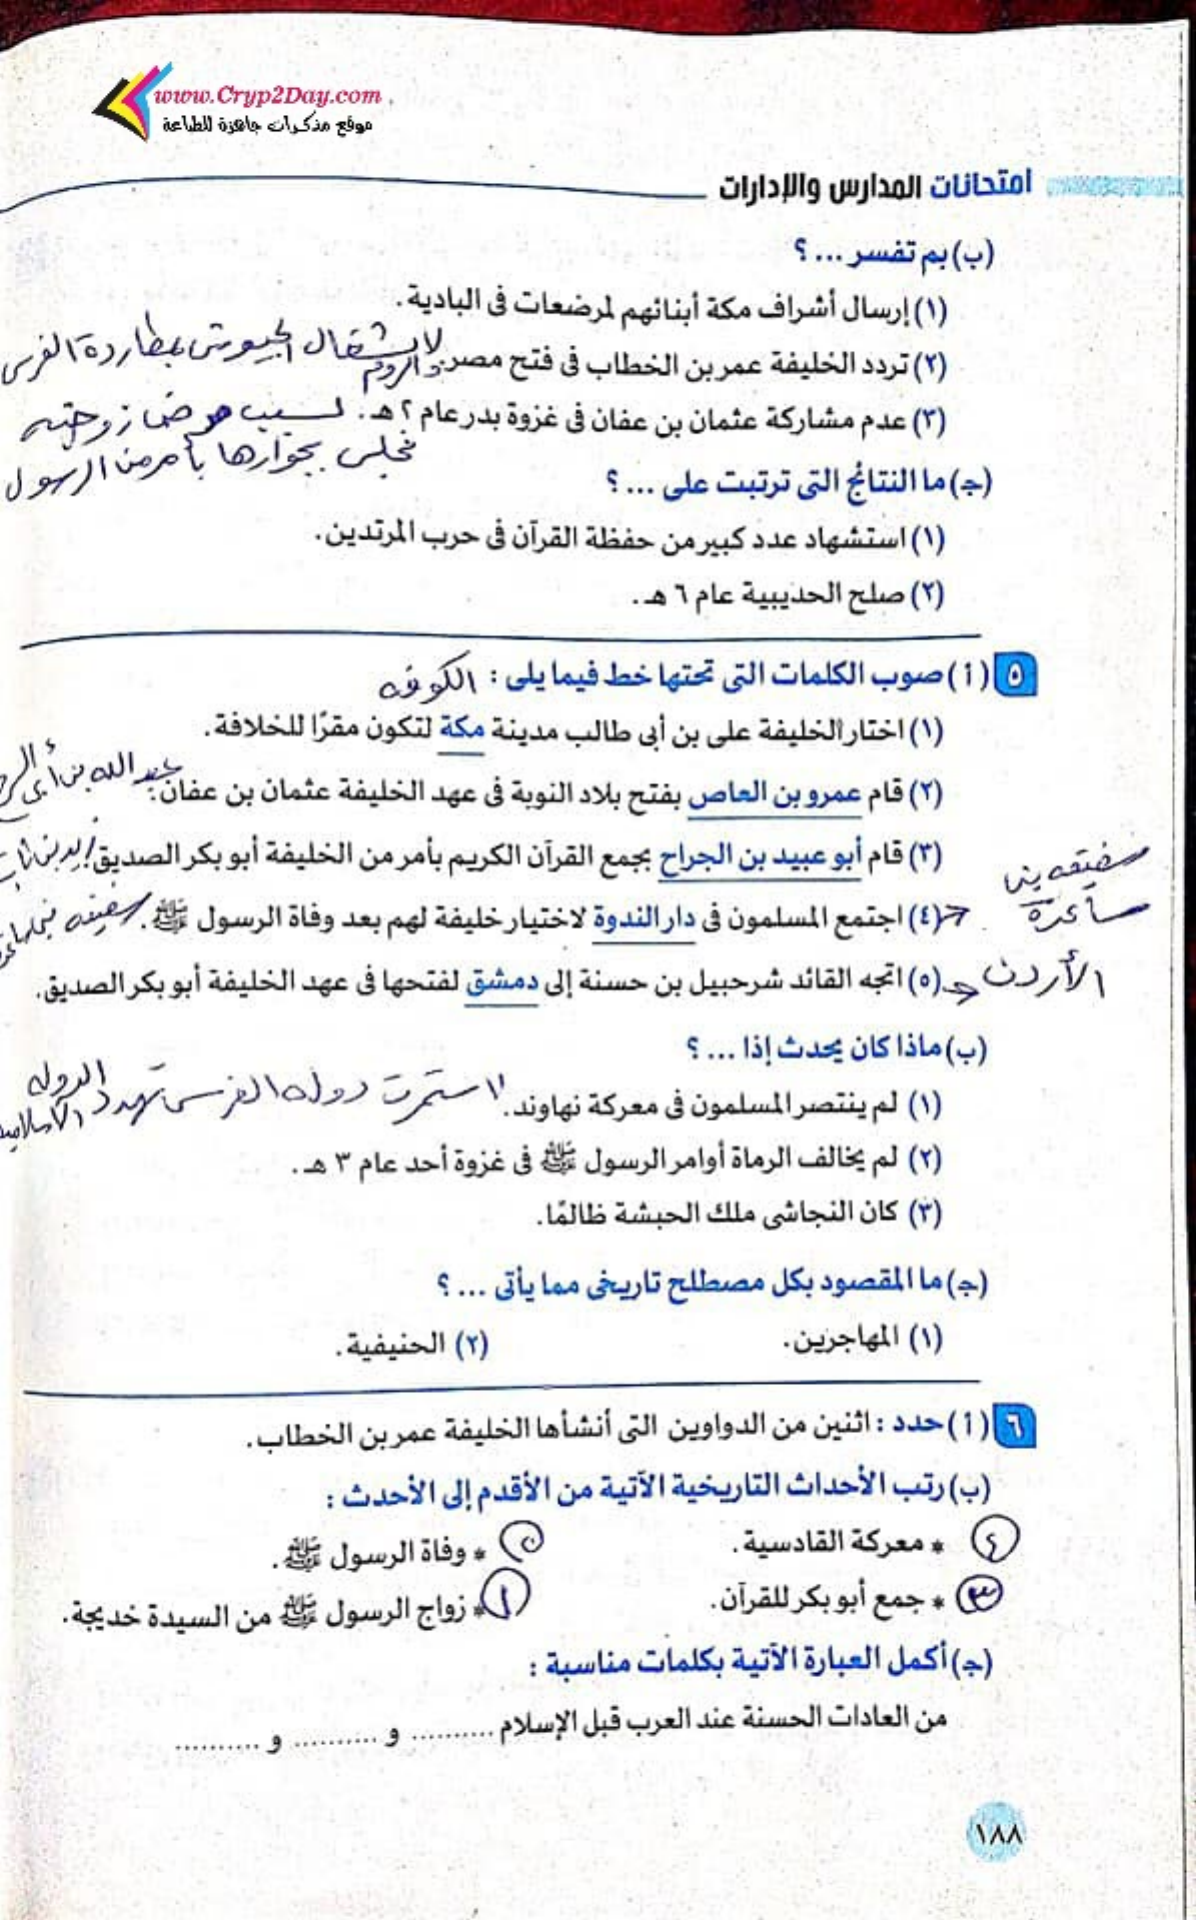 www.Cryp2Day.com
موقع مذكرات جاهزة للطباعة
امتحانات المدارس والإدارات
(ب) بم تفسر ... ؟
(١) إرسال أشراف مكة أبنائهم لمرضعات فى البادية.
(٢) تردد الخليفة عمر بن الخطاب فى فتح مصر. لانشغال الجيوش بمطاردة الفرس
والروم
(٣) عدم مشاركة عثمان بن عفان فى غزوة بدر عام ٢ هـ. بسبب مرض زوجته
فجلس بجوارها بأمر من الرسول
(جـ) ما النتائج التى ترتبت على ... ؟
(١) استشهاد عدد كبير من حفظة القرآن فى حرب المرتدين.
(٢) صلح الحديبية عام ٦ هـ.
٥ (أ) صوب الكلمات التى تحتها خط فيما يلى : الكوفه
(١) اختار الخليفة على بن أبى طالب مدينة مكة لتكون مقرًا للخلافة.
(٢) قام عمرو بن العاص بفتح بلاد النوبة فى عهد الخليفة عثمان بن عفان. عبد الله بن أبى
(٣) قام أبو عبيد بن الجراح بجمع القرآن الكريم بأمر من الخليفة أبو بكر الصديق. زيد بن
(٤) اجتمع المسلمون فى دار الندوة لاختيار خليفة لهم بعد وفاة الرسول ﷺ.
ساعدة
الأردن (٥) اتجه القائد شرحبيل بن حسنة إلى دمشق لفتحها فى عهد الخليفة أبو بكر الصديق.
(ب) ماذا كان يحدث إذا ... ؟
(١) لم ينتصر المسلمون فى معركة نهاوند. لاستمرت دوله الفرس تهدد الدوله
(٢) لم يخالف الرماة أوامر الرسول ﷺ فى غزوة أحد عام ٣ هـ.
(٣) كان النجاشى ملك الحبشة ظالمًا.
(جـ) ما المقصود بكل مصطلح تاريخى مما يأتى ... ؟
(١) المهاجرين. (٢) الحنيفية.
٦ (أ) حدد : اثنين من الدواوين التى أنشأها الخليفة عمر بن الخطاب.
(ب) رتب الأحداث التاريخية الآتية من الأقدم إلى الأحدث :
٤ * معركة القادسية. ٢ * وفاة الرسول ﷺ.
٣ * جمع أبو بكر للقرآن. ١ * زواج الرسول ﷺ من السيدة خديجة.
(جـ) أكمل العبارة الآتية بكلمات مناسبة :
من العادات الحسنة عند العرب قبل الإسلام .......... و .......... و ..........
١٨٨